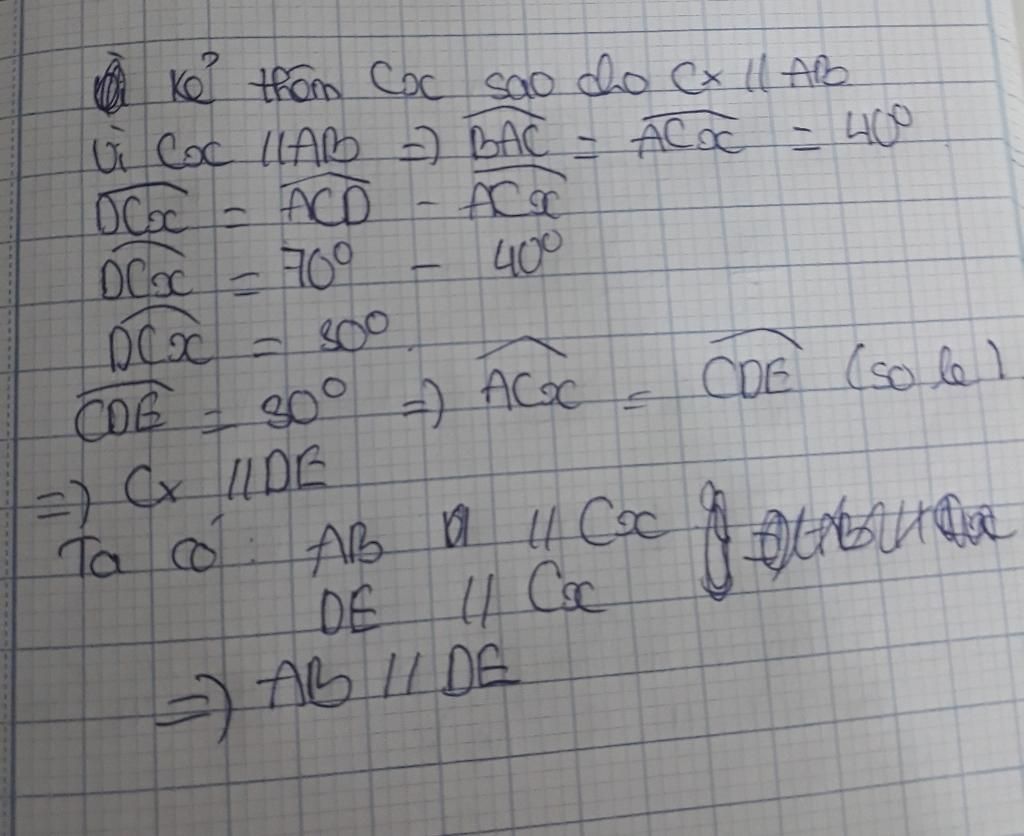 Kẻ thêm Cx sao cho Cx // AB
Vì Cx // AB => \widehat{BAC} = \widehat{ACx} = 40°
\widehat{DCx} = \widehat{ACD} - \widehat{ACx}
\widehat{DCx} = 70° - 40°
\widehat{DCx} = 30°.
\widehat{CDE} = 30° => \widehat{ACx} = \widehat{CDE} (so le)
=> Cx // DE
Ta có: AB // Cx
DE // Cx
=> AB // DE